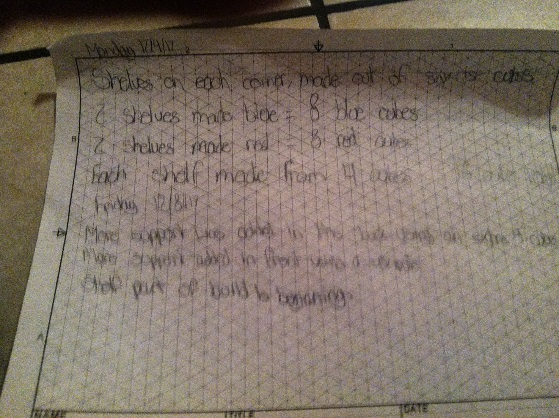 Monday 12/4/17
Shelves on each corner, made out of cubes
2 shelves made blue = 8 blue cubes
2 shelves made red = 8 red cubes
Each shelf made from 4 cubes
Friday 12/8/17
More support was added in the using an extra 4 cubes
More support added in front using
part of build is beginning.
NAME
TITLE
DATE